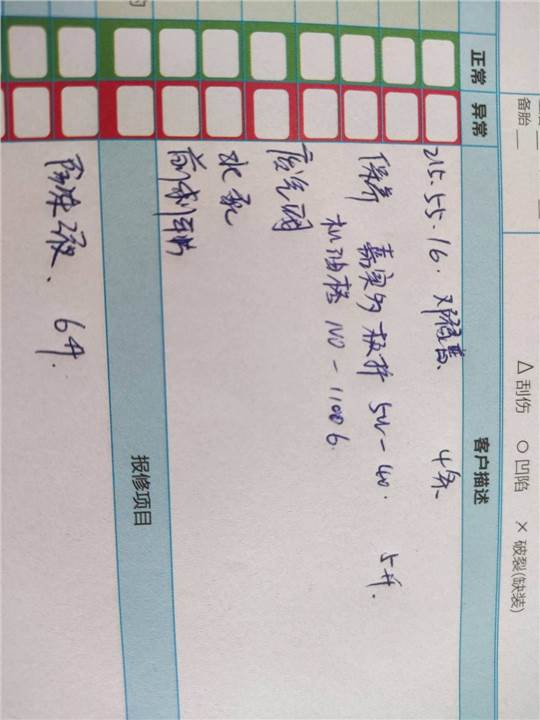 备胎
△ 刮伤 ○ 凹陷 × 破裂(缺装)
正常
异常
客户描述
215.55.16. 邓禄普 4条
保养 嘉实多 极护 5W-40. 5升.
机油格 NO-11006.
水泵
前刹车片
报修项目
防冻液、6升.